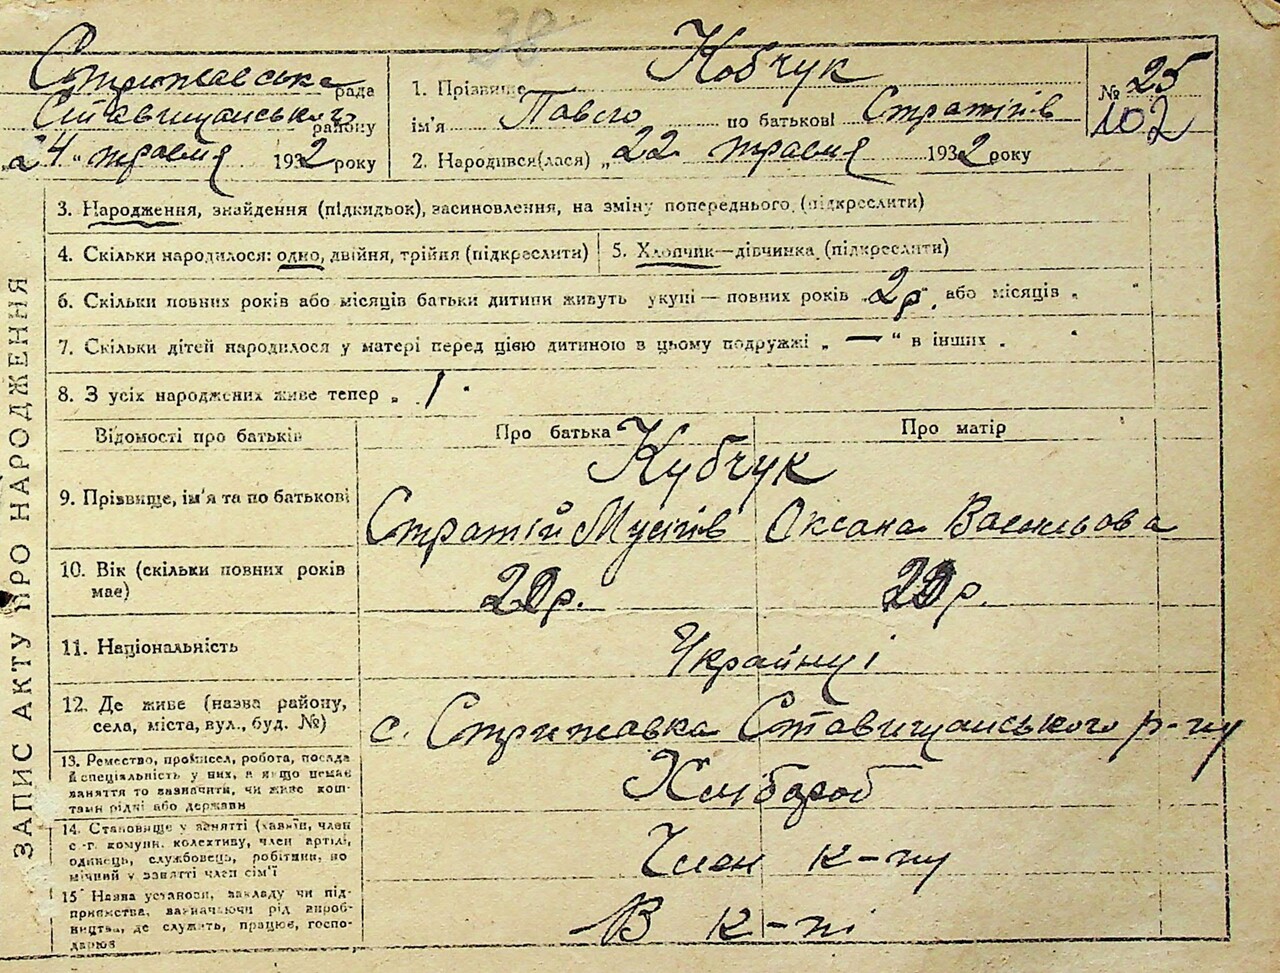 38
Стрижавська рада
Ставищанського району
„24" травня 1932 року
1. Прізвище Кобчук
ім'я Павло по батькові Стратіїв
2. Народився(лася) „22 травня 1932 року
№ 25
102
ЗАПИС АКТУ ПРО НАРОДЖЕННЯ
3. Народження, знайдення (підкидьок), засиновлення, на зміну попереднього. (підкреслити)
4. Скільки народилося: одно, двійня, трійня (підкреслити)
5. Хлопчик—дівчинка (підкреслити)
6. Скільки повних років або місяців батьки дитини живуть укупі — повних років „2р." або місяців „ "
7. Скільки дітей народилося у матері перед цією дитиною в цьому подружжі „ — " в інших „ "
8. З усіх народжених живе тепер „ 1 "
Відомості про батьків
Про батька
Про матір
9. Прізвище, ім'я та по батькові
Кубчук
Стратій Мусіїв
Оксана Васильова
10. Вік (скільки повних років має)
р.
р.
11. Національність
Українці
12. Де живе (назва району,
села, міста, вул., буд. №)
с. Стрижавка Ставищанського р-ну
13. Ремество, промисел, робота, посада
й спеціальність у них, а якщо немає
заняття то зазначити, чи живе кош-
тами рідні або держави
Хлібороб
14. Становище у занятті (хазяїн, член
с.-г. комуни, колективу, член артілі,
одинець, службовець, робітник, по
мічний у занятті член сім'ї
Член к-пу
15 Назва установи, закладу чи під-
приємства, зазначаючи рід вироб-
ництва, де служить, працює, госпо-
дарює
В к-пі